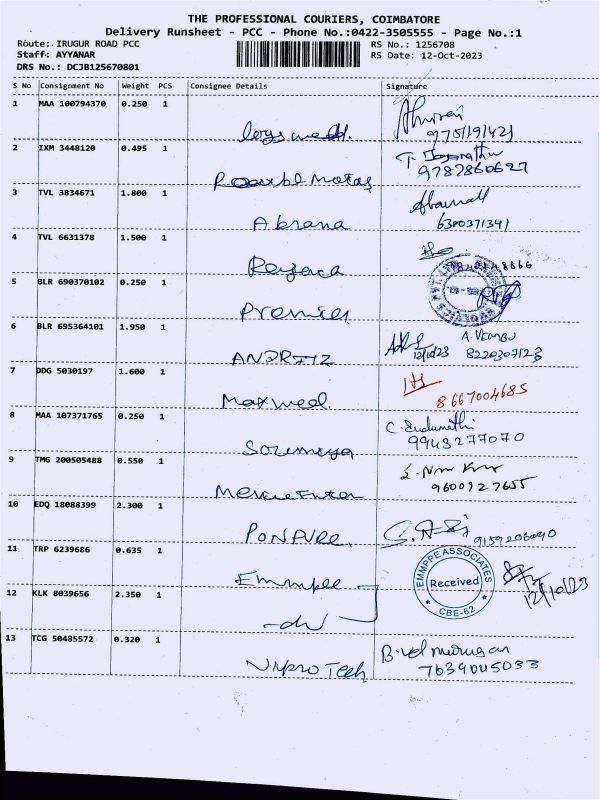 THE PROFESSIONAL COURIERS, COIMBATORE
Delivery Runsheet - PCC - Phone No.:0422-3505555 - Page No.:1
Route: IRUGUR ROAD PCC
RS No.: 1256708
Staff: AYYANAR
RS Date: 12-Oct-2023
DRS No.: DCJB125670801
S No Consignment No Weight PCS Consignee Details Signature
1 MAA 100794370 0.250 1
9751191421
2 IXM 3448120 0.495 1
9787860627
3 TVL 3834671 1.800 1
Abrana 6380371341
4 TVL 6631378 1.500 1
5 BLR 690370102 0.250 1
Premier
6 BLR 695364101 1.950 1 A. VEMBU
ANDRITZ 12/10/23 8220307123
7 DDG 5030197 1.600 1
Maxwell 8667004685
8 MAA 107371765 0.250 1 C. Indumathi
Soumeya 9943277070
9 TMG 200505488 0.550 1
9600927655
10 EDQ 18088399 2.300 1
PONPURE 9159206040
11 TRP 6239686 0.635 1
Emmpee EMMPPE ASSOCIATES Received CBE-62 12/10/23
12 KLK 8039656 2.350 1
-do-
13 TCG 50485572 0.320 1 B. Velmurugan
7639045033